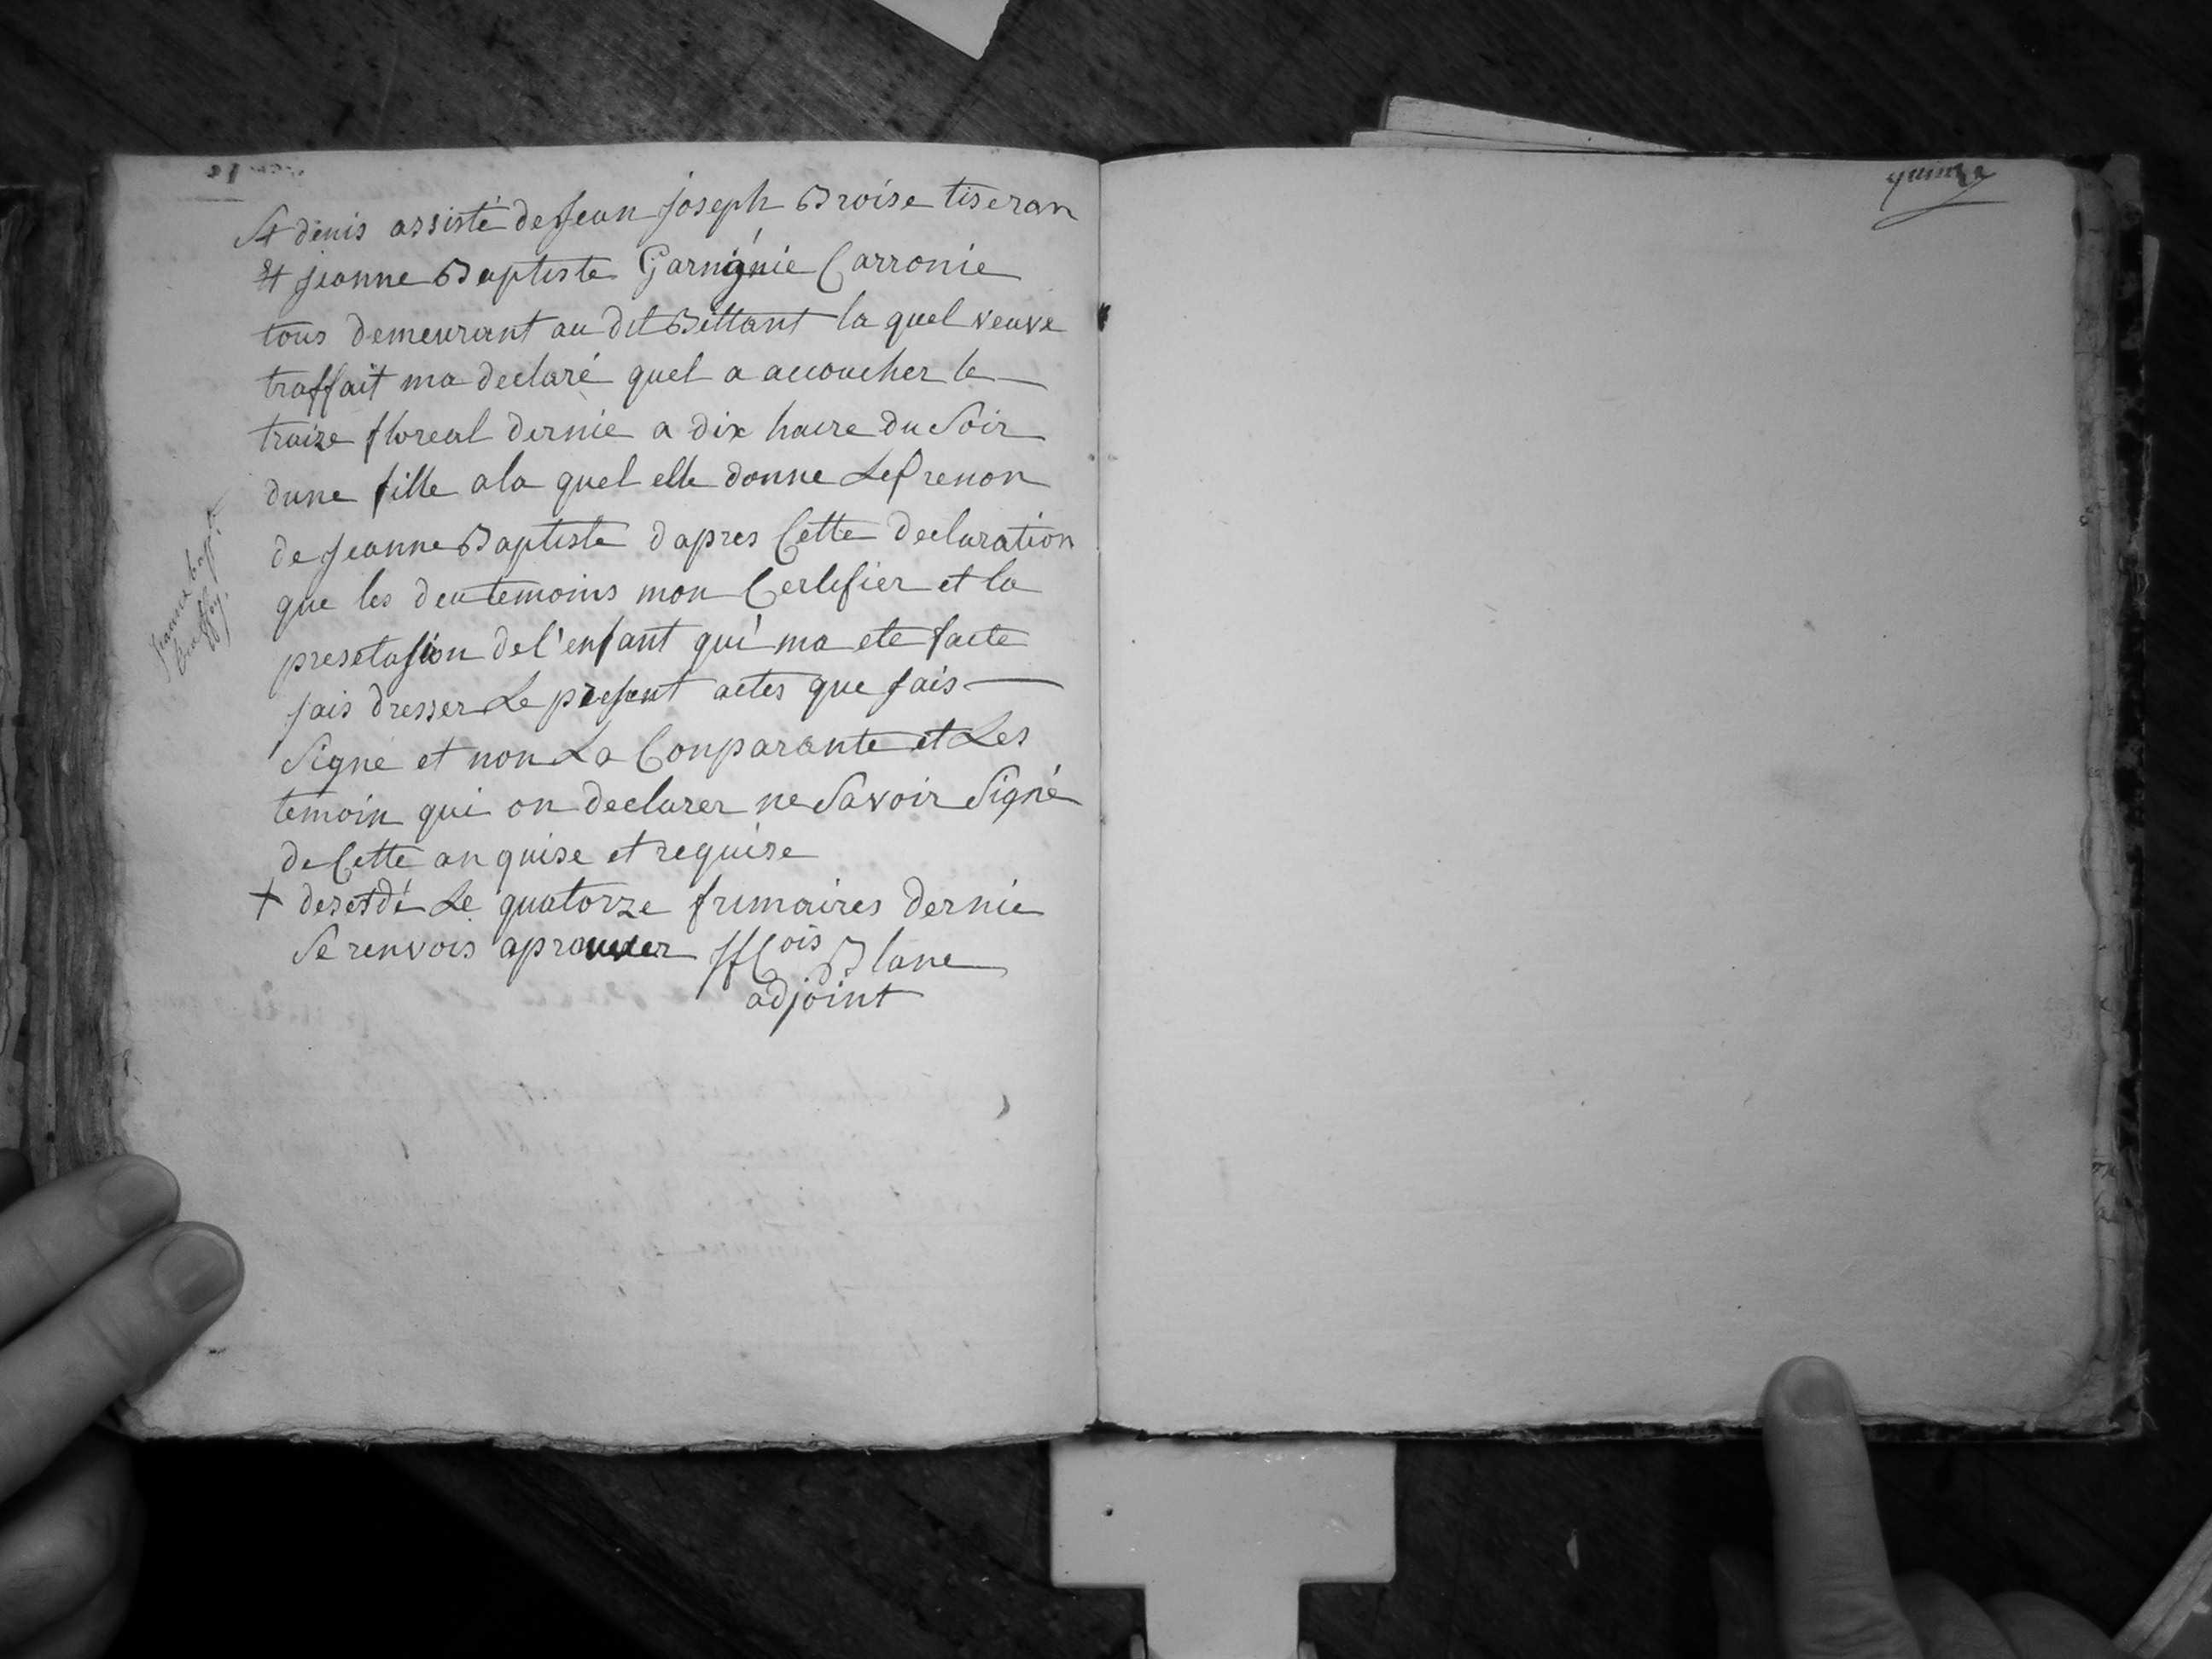 St denis assisté de Jean joseph Broise tiseran
et jeanne Baptiste Garnignie Carronie
tous demeurant au dit Bettant la quel veuve
traffait ma declaré quel a accoucher le
traize floreal dernie a dix haure du Soir
dune fille a la quel elle donne Le Prenon
de Jeanne Baptiste dapres Cette declaration
que les deu temoins mon Certifier et la
presetasion de l'enfant qui ma ete faite
jais dresser Le present actes que jais
Signé et non La Conparante et Les
temoin qui on declarer ne Savoir Signé
de Cette anquise et requise
+ desesdé Le quatorze frimaires dernie
Se renvois aprouver Blanc
adjoint
jeanne bapt.
quinze